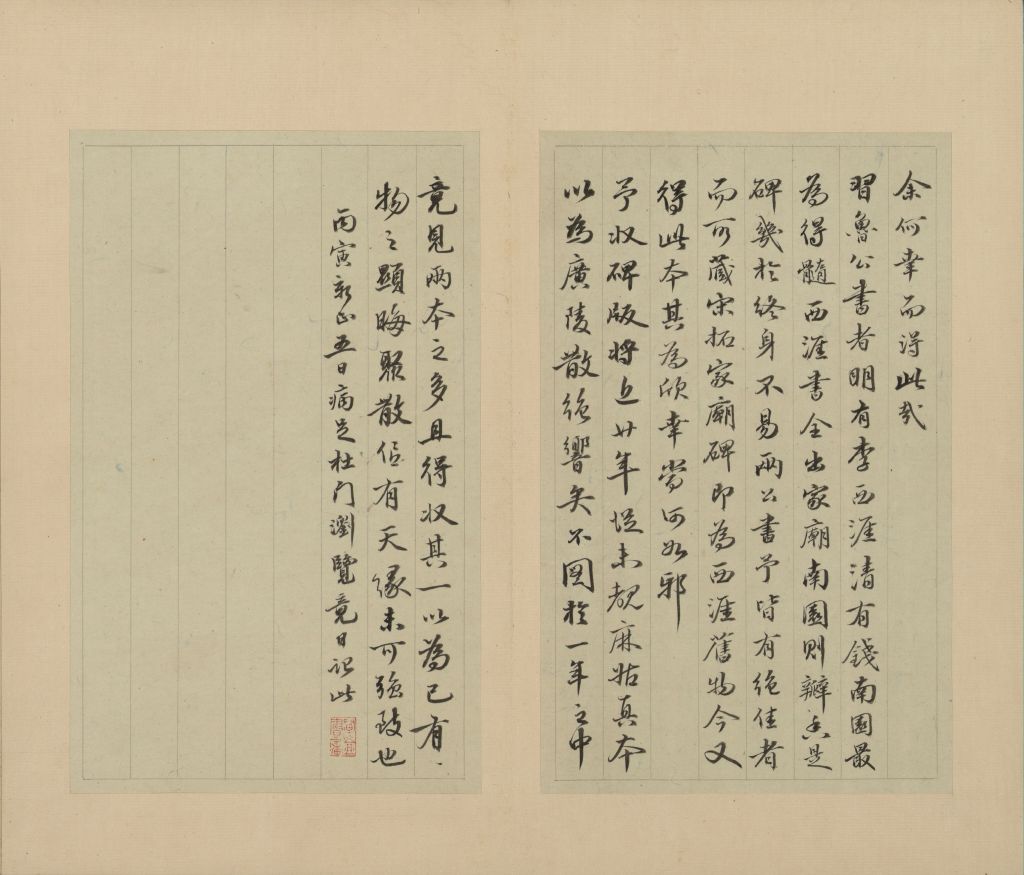 余何幸而得此哉
習魯公書者明有李西涯清有錢南園最
為得髓西涯書全出家廟南園則瓣香是
碑幾於終身不易兩公書予皆有絶佳者
而可藏宋拓家廟碑即為西涯舊物今又
得此本其為欣幸當何如邪
予收碑版將近廿年從未覩麻姑真本
以為廣陵散絶響矣不圖於一年之中
竟見兩本之多且得收其一以為己有
物之顯晦聚散信有天緣未可強致也
丙寅新正五日病足杜門瀏覽竟日記此